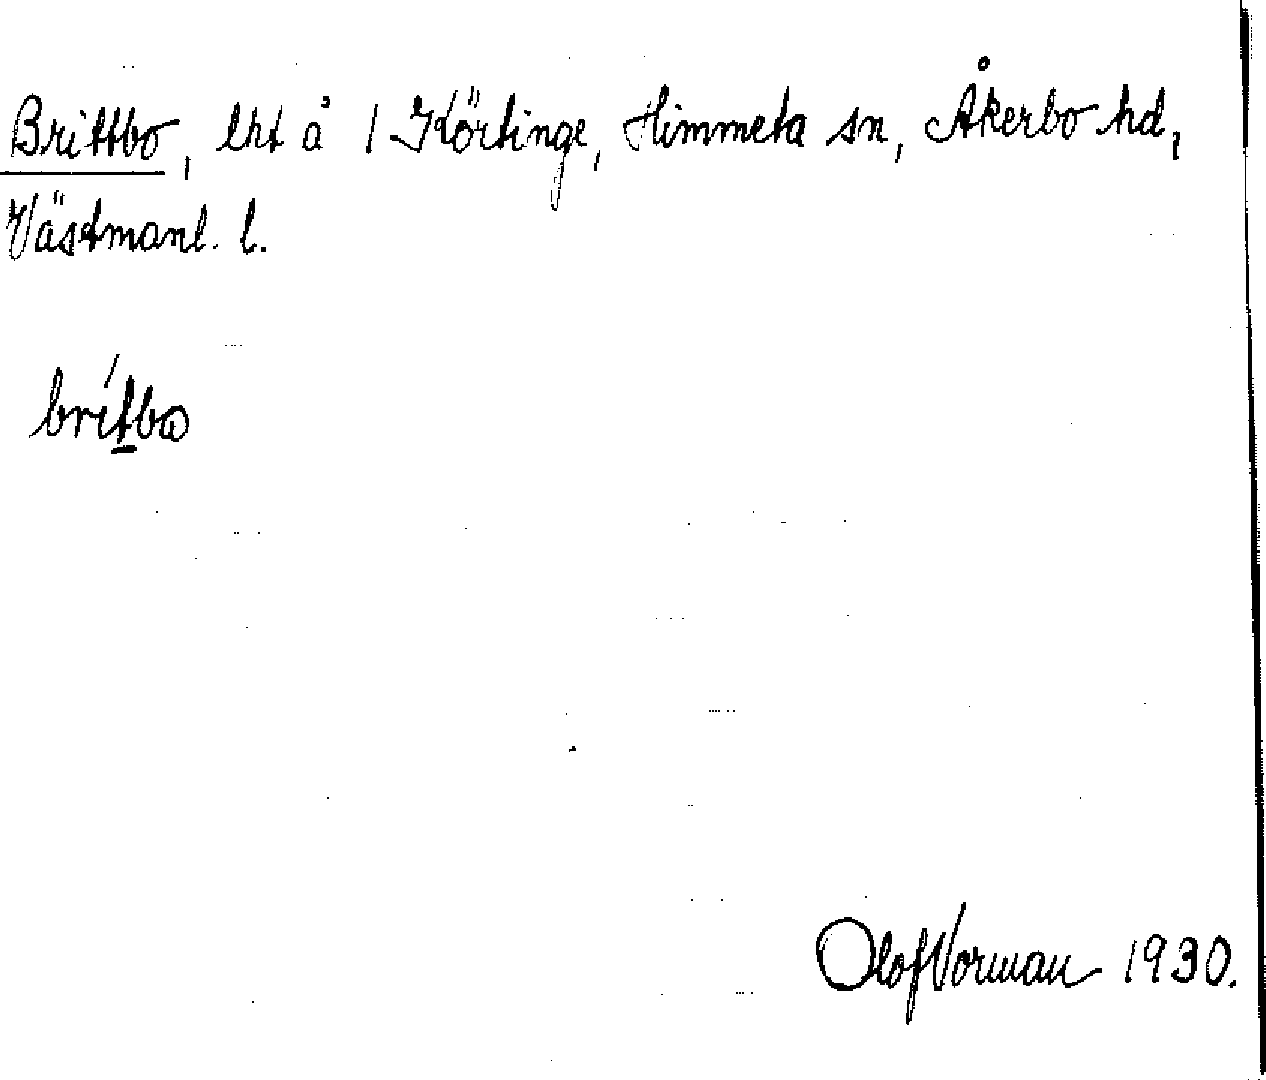 Brittbo, lht å 1 Körtinge, Himmeta sn, Åkerbo hd,
Västmanl. l.
brítbo
Olof Norman 1930.